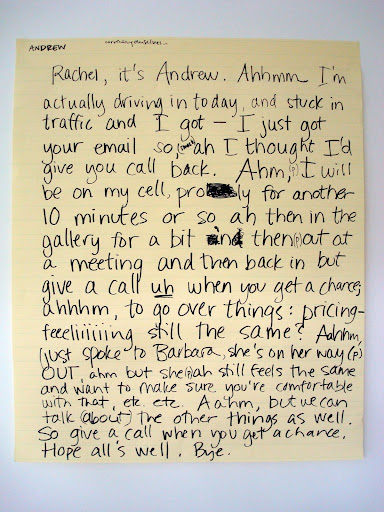 ANDREW
Rachel, it's Andrew. Ahhmm I'm
actually driving in today, and stuck in
traffic and I got - I just got
your email so, ah I thought I'd
give you call back. Ahm, (p) I will
be on my cell, probably for another
10 minutes or so ah then in the
gallery for a bit and then (p) out at
a meeting and then back in but
give a call uh when you get a chance,
ahhhm, to go over things: pricing-
feeliiiiiing still the same? Aahhm,
I just spoke to Barbara, she's on her way (p)
OUT, ahm but she (p) ah still feels the same
and want to make sure you're comfortable
with that, etc. etc. Aahm, but we can
talk (about) the other things as well.
So give a call when you get a chance.
Hope all's well. Bye.